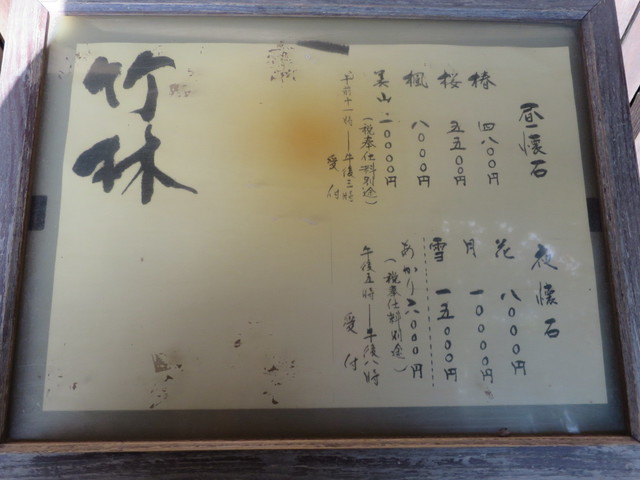 昼懐石
椿 四八〇〇円
桜 五五〇〇円
楓 八〇〇〇円
美山 一〇〇〇〇円
(税奉仕料別途)
午前十一時―午後三時
受付
夜懐石
花 八〇〇〇円
月 一〇〇〇〇円
雪 一五〇〇〇円
あかり 六〇〇〇円
(税奉仕料別途)
午後五時―午後八時
受付
竹林